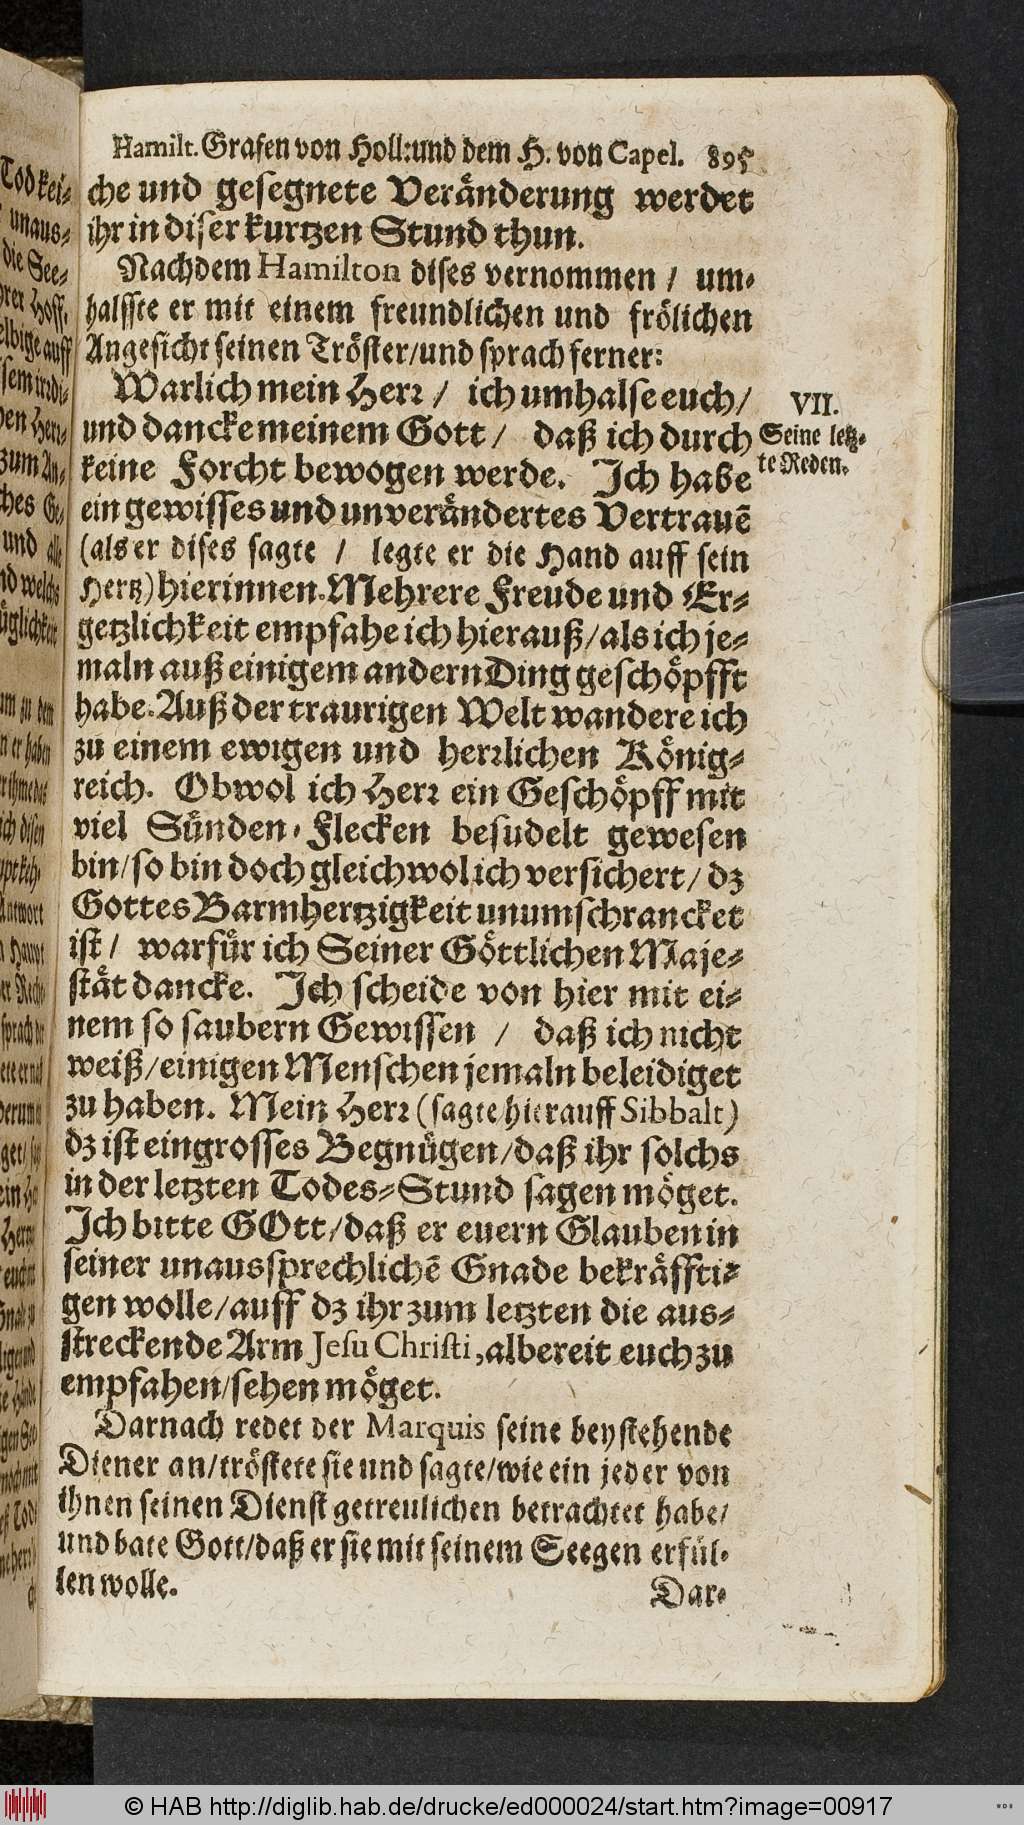 Hamilt. Grafen von Holl: und dem H. von Capel. 895
che und gesegnete Veränderung werdet
ihr in diser kurtzen Stund thun.
Nachdem Hamilton dises vernommen / um-
halsste er mit einem freundlichen und frölichen
Angesicht seinen Tröster/und sprach ferner:
Warlich mein Herr / ich umhalse euch/
und dancke meinem Gott / daß ich durch
keine Forcht bewogen werde. Ich habe
ein gewisses und unverändertes Vertrauẽ
(als er dises sagte / legte er die Hand auff sein
Hertz) hierinnen. Mehrere Freude und Er-
getzlichkeit empfahe ich hierauß/als ich je-
maln auß einigem andern Ding geschöpfft
habe. Auß der traurigen Welt wandere ich
zu einem ewigen und herrlichen König-
reich. Obwol ich Herr ein Geschöpff mit
viel Sünden-Flecken besudelt gewesen
bin/so bin doch gleichwol ich versichert/ dz
Gottes Barmhertzigkeit unumschrancket
ist / warfür ich Seiner Göttlichen Maje-
stät dancke. Ich scheide von hier mit ei-
nem so saubern Gewissen / daß ich nicht
weiß/einigen Menschen jemaln beleidiget
zu haben. Mein Herr (sagte hierauff Sibbalt)
dz ist ein grosses Begnügen/daß ihr solchs
in der letzten Todes-Stund sagen möget.
Ich bitte GOtt/daß er euern Glauben in
seiner unaussprechlichẽ Gnade bekräffti-
gen wolle/auff dz ihr zum letzten die aus-
streckende Arm Jesu Christi, albereit euch zu
empfahen/sehen möget.
Darnach redet der Marquis seine beystehende
Diener an/tröstete sie und sagte/wie ein jeder von
ihnen seinen Dienst getreulichen betrachtet habe/
und bate Gott/daß er sie mit seinem Seegen erfül-
len wolle.
Dar-
VII.
Seine letz-
te Reden.
© HAB http://diglib.hab.de/drucke/ed000024/start.htm?image=00917